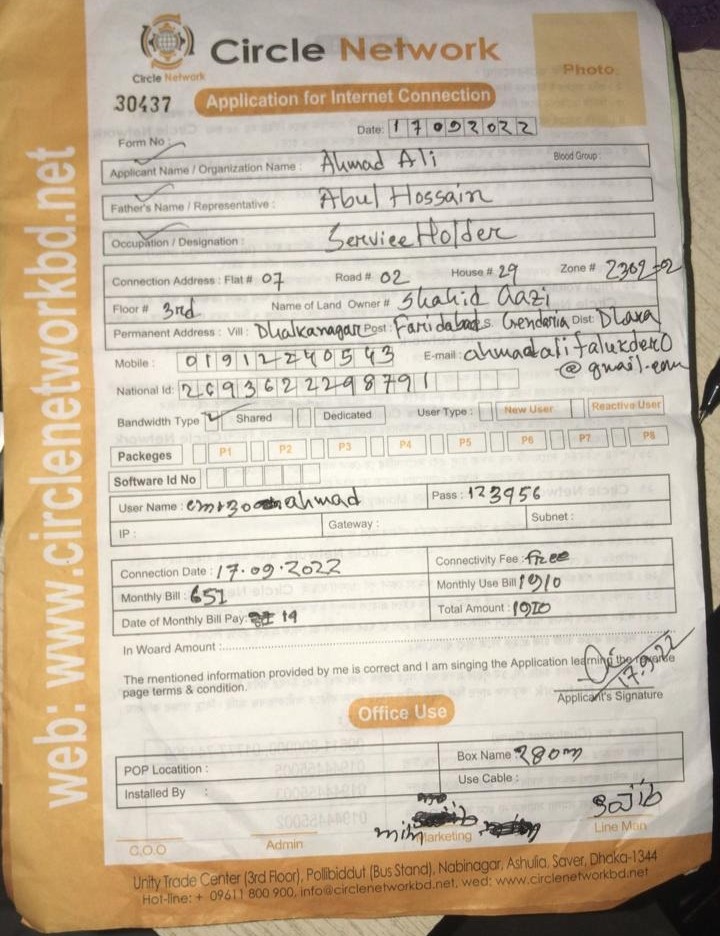 Circle Network
Circle Network
Photo:
30437
Application for Internet Connection
Date: 17092022
Form No :
Applicant Name / Organization Name : Ahmad Ali Blood Group :
Father's Name / Representative : Abul Hossain
Occupation / Designation : Service Holder
Connection Address : Flat # 07 Road # 02 House # 29 Zone # 2302-02
Floor # 3rd Name of Land Owner # Shahid Gazi
Permanent Address : Vill : Dhalkanagar Post : Faridabad P.S. Genderia Dist: Dhaka
Mobile : 01912240543 E-mail : ahmadalifalukder0
@gmail.com
National Id: 2693622298791
Bandwidth Type Shared Dedicated User Type : New User Reactive User
Packeges P1 P2 P3 P4 P5 P6 P7 P8
Software Id No
User Name : ahmad Pass : 123456
IP : Gateway : Subnet :
Connection Date : 17.09.2022 Connectivity Fee : free
Monthly Bill : 651 Monthly Use Bill : 1910
Date of Monthly Bill Pay: 19 Total Amount : 1910
In Woard Amount :
The mentioned information provided by me is correct and I am singing the Application learning the reverse
page terms & condition.
17.9.22
Applicant's Signature
Office Use
POP Locatition : Box Name : 280m
Installed By : Use Cable :
Sojib
C.O.O Admin Marketing Line Man
Unity Trade Center (3rd Floor), Pollibiddut (Bus Stand), Nabinagar, Ashulia, Saver, Dhaka-1344
Hot-line: + 09611 800 900, info@circlenetworkbd.net, wed: www.circlenetworkbd.net
web: www.circlenetworkbd.net